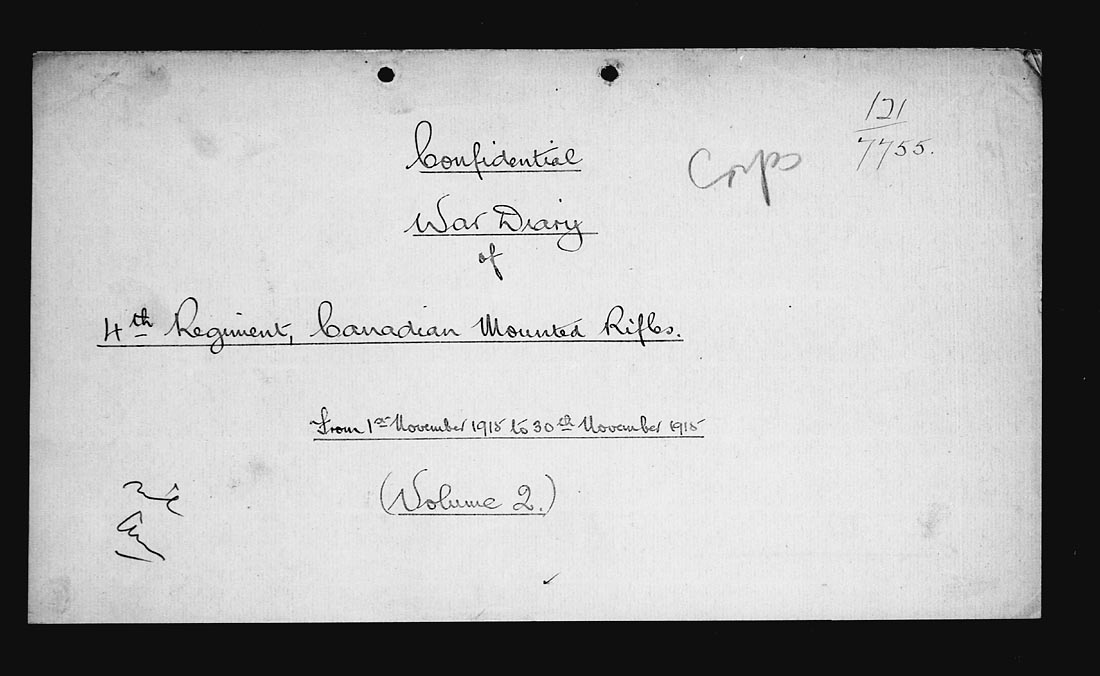 121
7755.
Corps
Confidential
War Diary
of
4th Regiment, Canadian Mounted Rifles.
From 1st November 1915 to 30th November 1915
(Volume 2.)